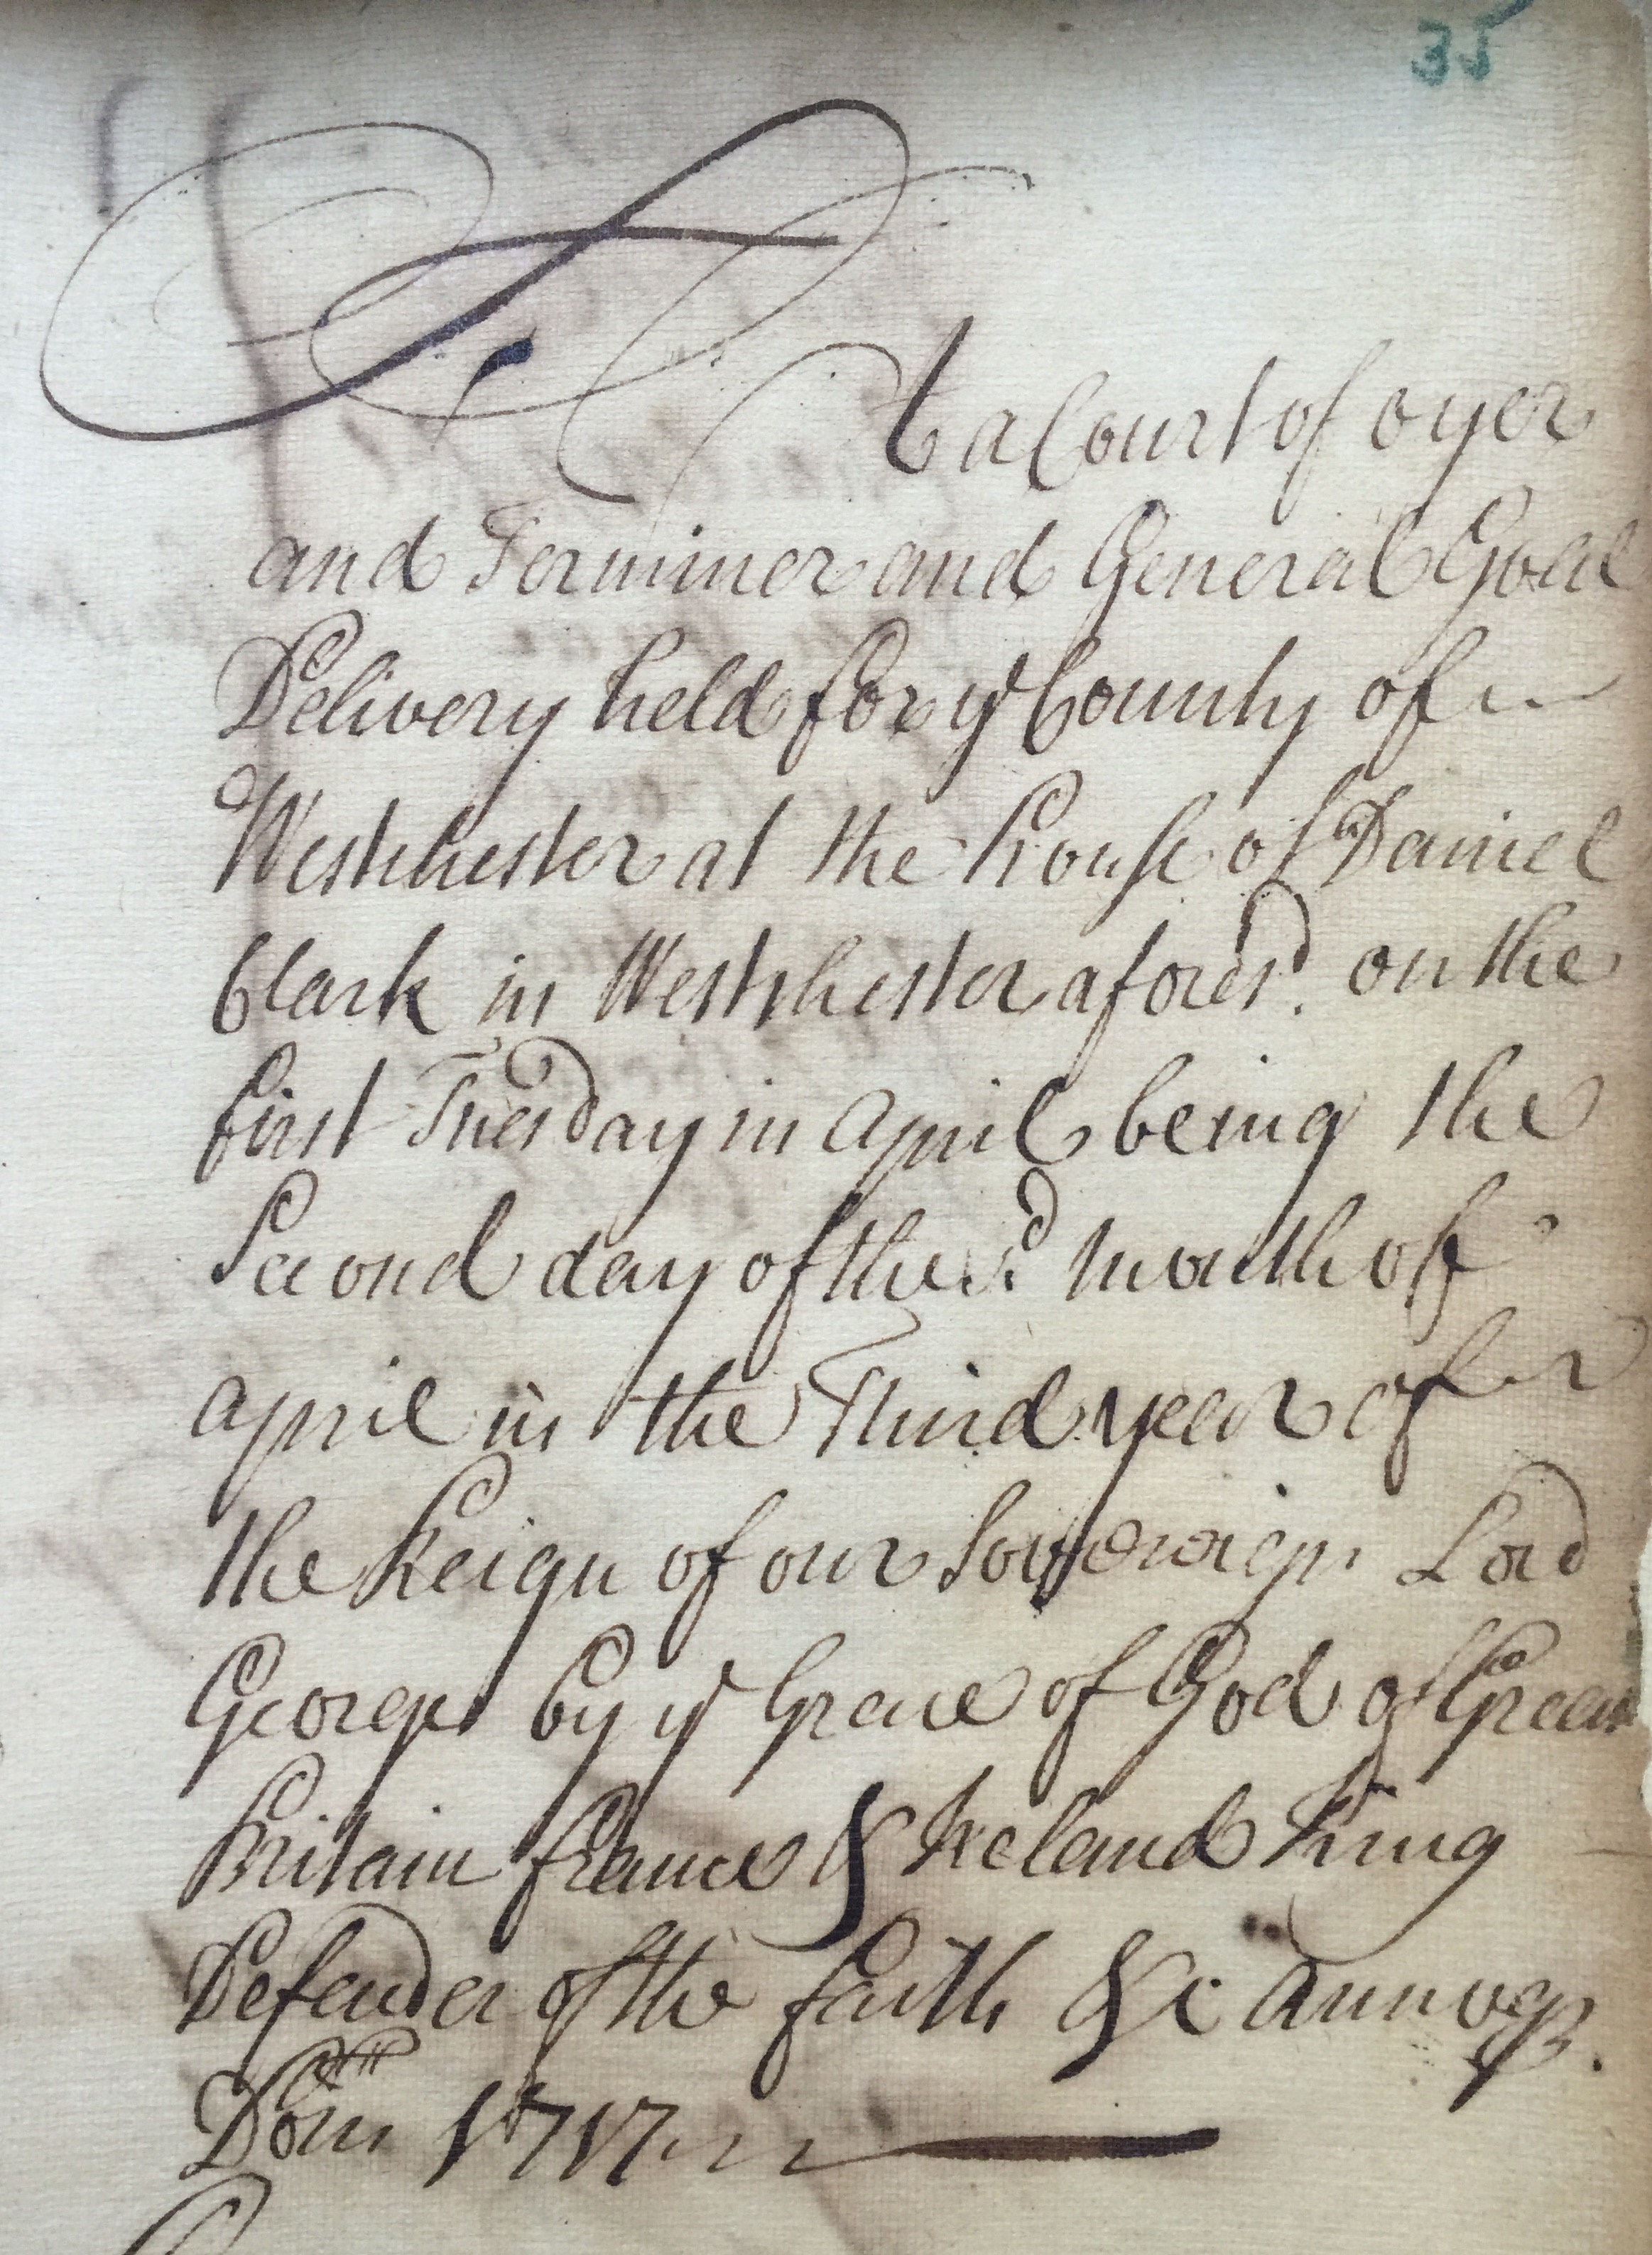 35
At a Court of oyer
and Terminer and General Goal
Delivery held for yᵉ County of
Westchester at the house of Daniel
Clark in Westchester aforesᵈ. on the
first Tuesday in April being the
Second day of the sᵈ. month of
April in the Third year of
the Reign of our Sovereign Lord
George by yᵉ Grace of God of Great
Britain France & Ireland King
Defender of the faith &c Annoqᵉ.
Dom 1717